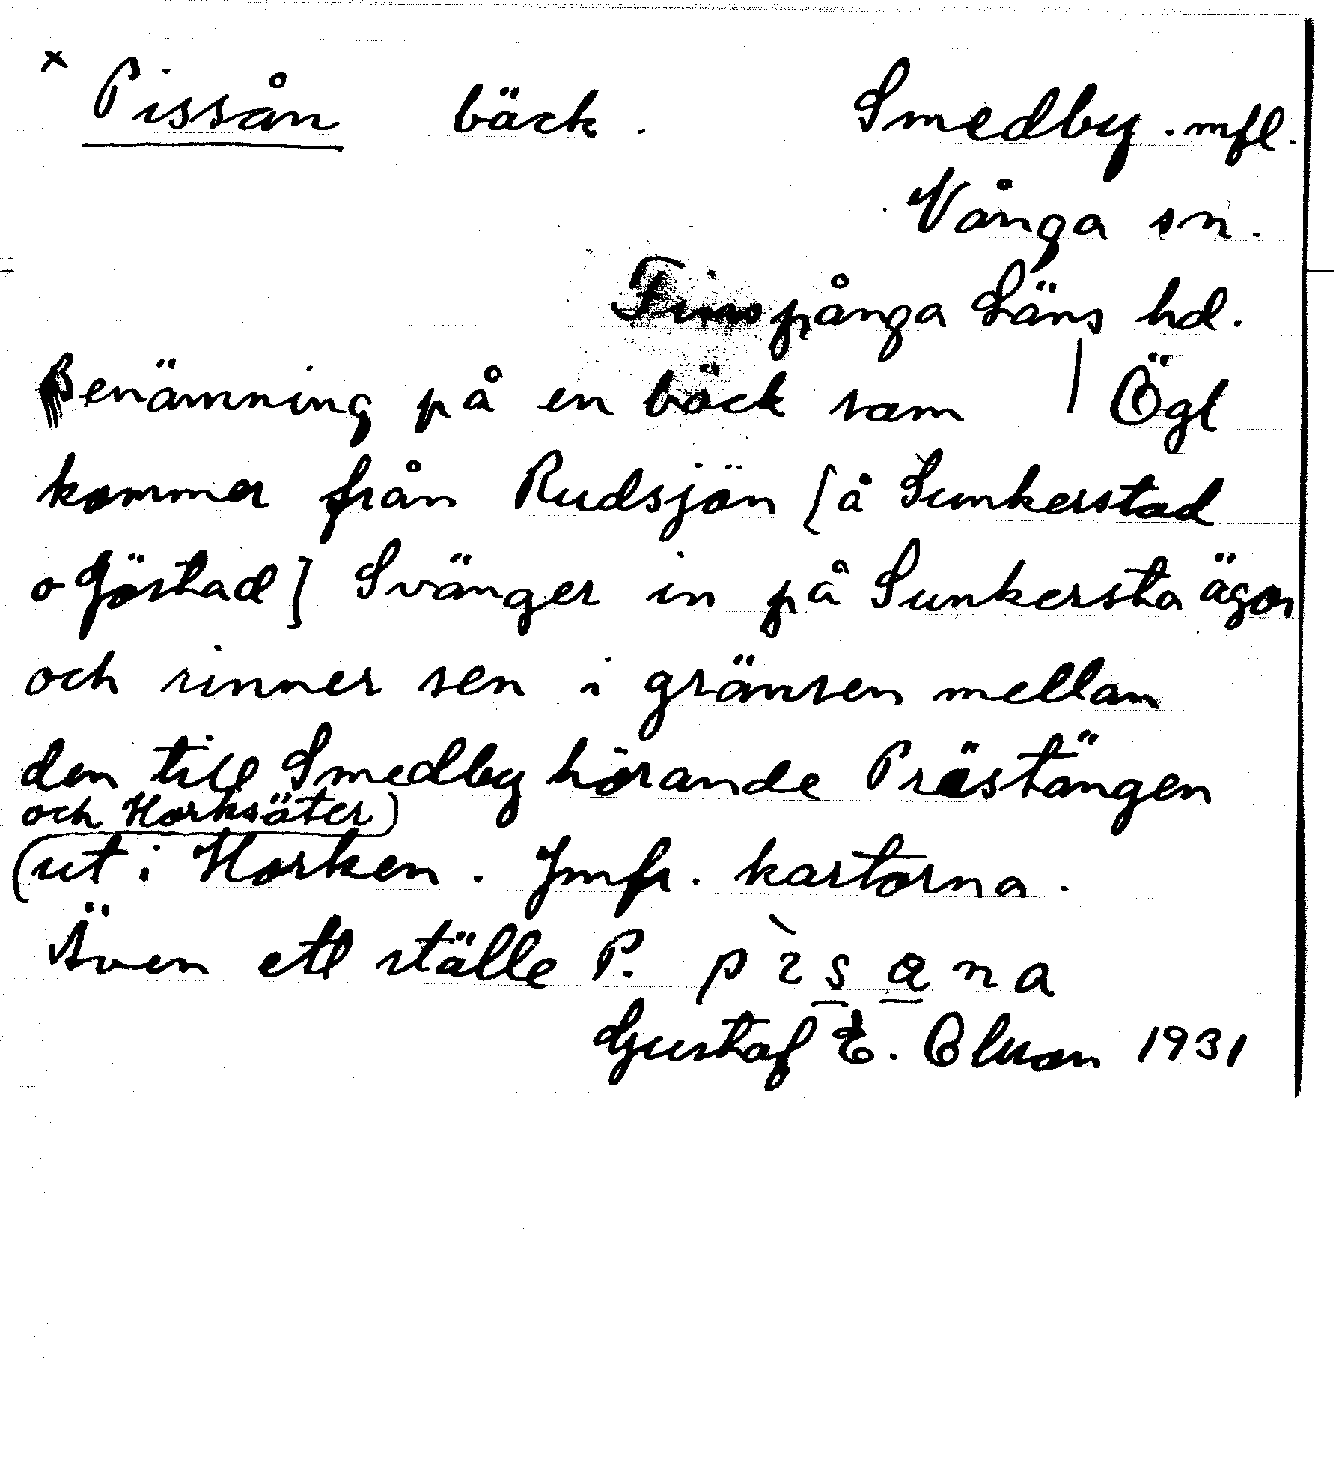 x Pissån bäck. Smedby. mfl.
Vånga sn.
Finspånga Läns hd.
Benämning på en bäck som | Ögl
kommer från Rudsjön [å Sunkerstad
o Jöstad] Svänger in på Sunkersta ägor
och rinner sen i gränsen mellan
den till Smedby hörande Prästängen
och Horksäter)
(ut i Horken. Jmfr. kartorna.
Även ett ställe P. pìsana
Gustaf E. Olsson 1931